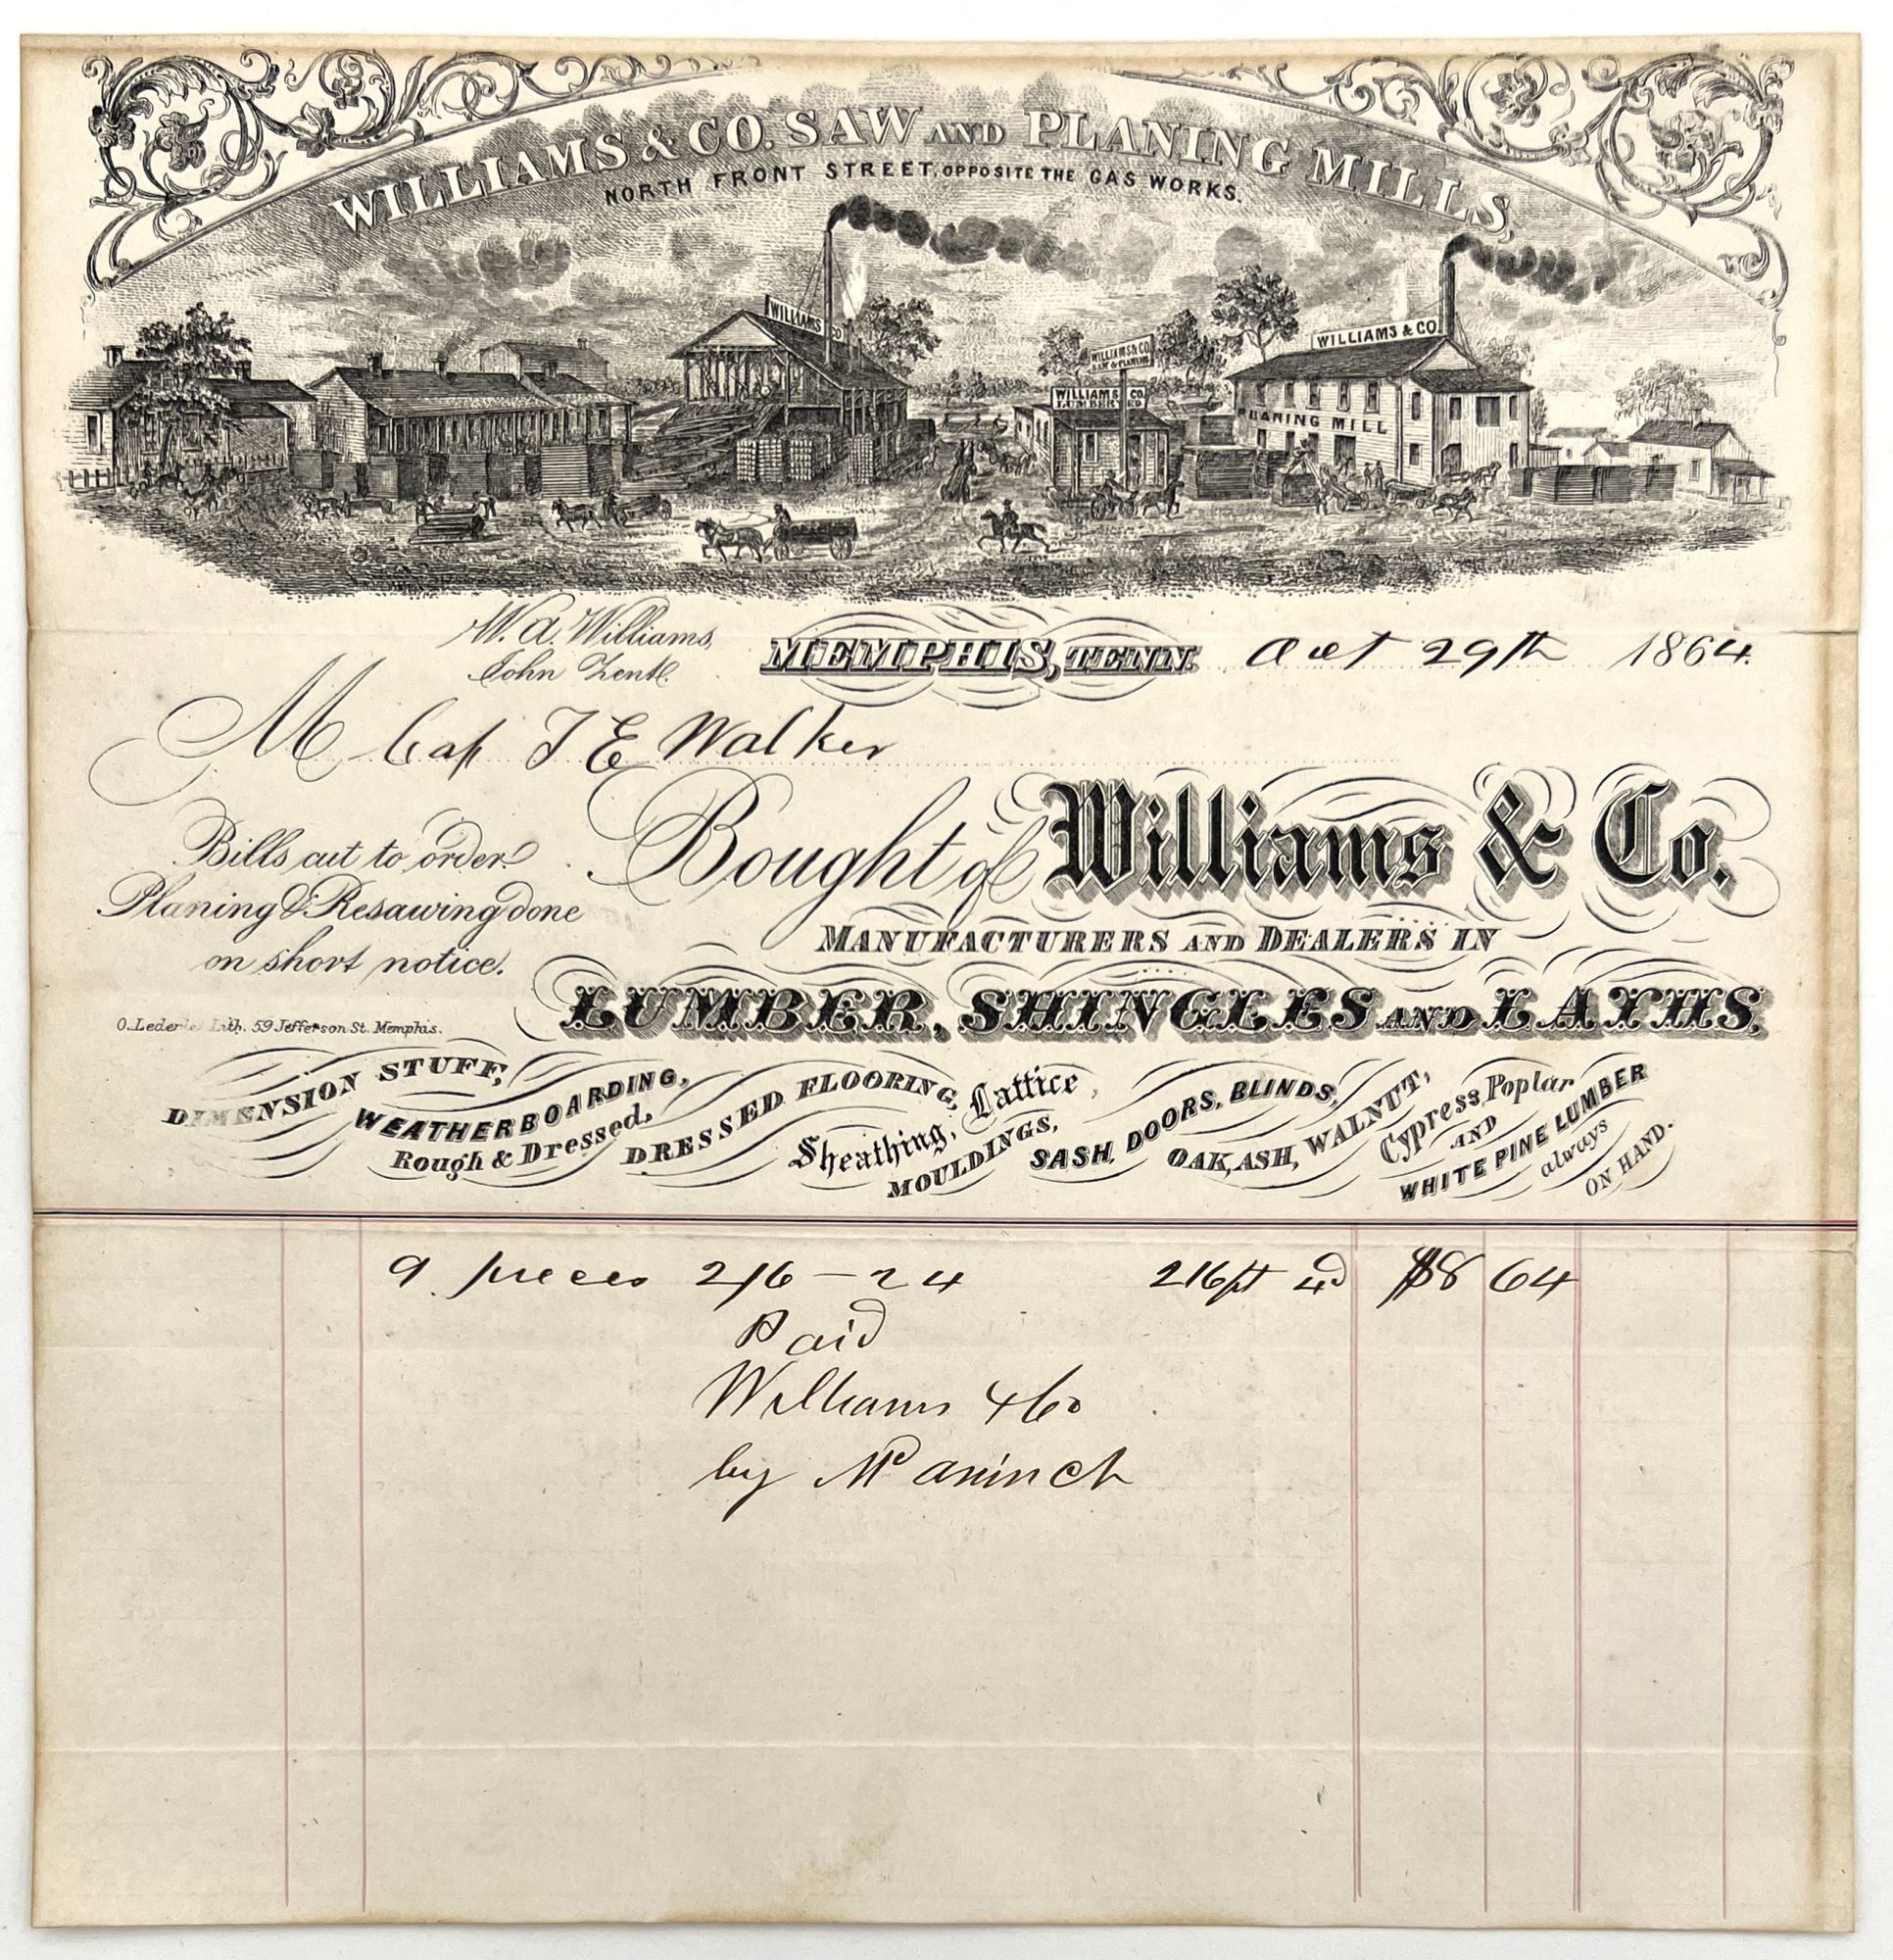 WILLIAMS & CO. SAW AND PLANING MILLS,
NORTH FRONT STREET, OPPOSITE THE GAS WORKS.
WILLIAMS CO
WILLIAMS & CO.
SAW & PLANING
WILLIAMS CO
LUMBER
WILLIAMS & CO.
PLANING MILL
W. A. Williams,
John Zent.
MEMPHIS, TENN. Oct 29th 1864.
M Cap J E Walker
Bought of Williams & Co.
Bills cut to order.
Planing & Resawing done
on short notice.
MANUFACTURERS AND DEALERS IN
LUMBER, SHINGLES AND LATHS,
O. Lederle Lith. 59 Jefferson St. Memphis.
DIMENSION STUFF,
WEATHERBOARDING,
Rough & Dressed,
DRESSED FLOORING,
Sheathing, Lattice,
MOULDINGS,
SASH, DOORS, BLINDS,
OAK, ASH, WALNUT,
Cypress, Poplar
AND
WHITE PINE LUMBER
always
ON HAND.
9 pieces 2/6 — 24 216ft 4d $8 64
Paid
Williams & Co
by McAninch